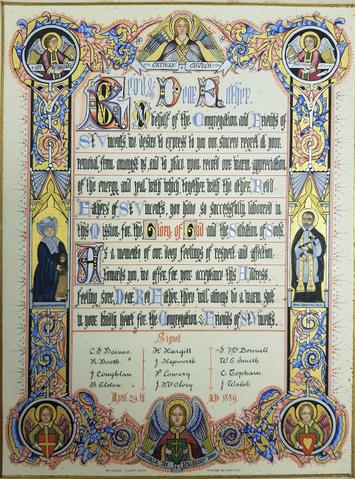 CATHOLIC CHURCH
Rev'd & Dear Father.
On behalf of the Congregation and Friends of
St Vincents, we desire to express to you our sincere regret at your
removal from amongst us and to place upon record our warm appreciation
of the energy and zeal with which together with the other Rev'd
Fathers of St Vincents, you have so successfully laboured in
this Mission for the Glory of God and the Salvation of Souls.
As a momento of our deep feelings of respect and affection
towards you, we offer for your acceptance this Address,
feeling sure, Dear Rev'd Father, there will always be a warm spot
in your kindly heart for the Congregation & Friends of St Vincents.
Signed
C. Baines. H Hargitt G. McDonnell
R Booth. J Hepworth W E Smith
J Coughlan P Lowery C Topham
B Elston J McClory J Walsh
April 29th AD 1889.